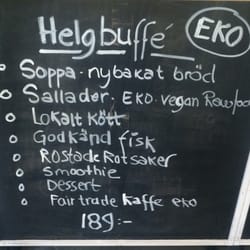 Helgbuffé EKO
Soppa · nybakat bröd
Sallader. EKO. vegan Rawfood
Lokalt kött
Godkänd fisk
Rostade Rotsaker
Smoothie
Dessert
Fairtrade kaffe eko
189:-